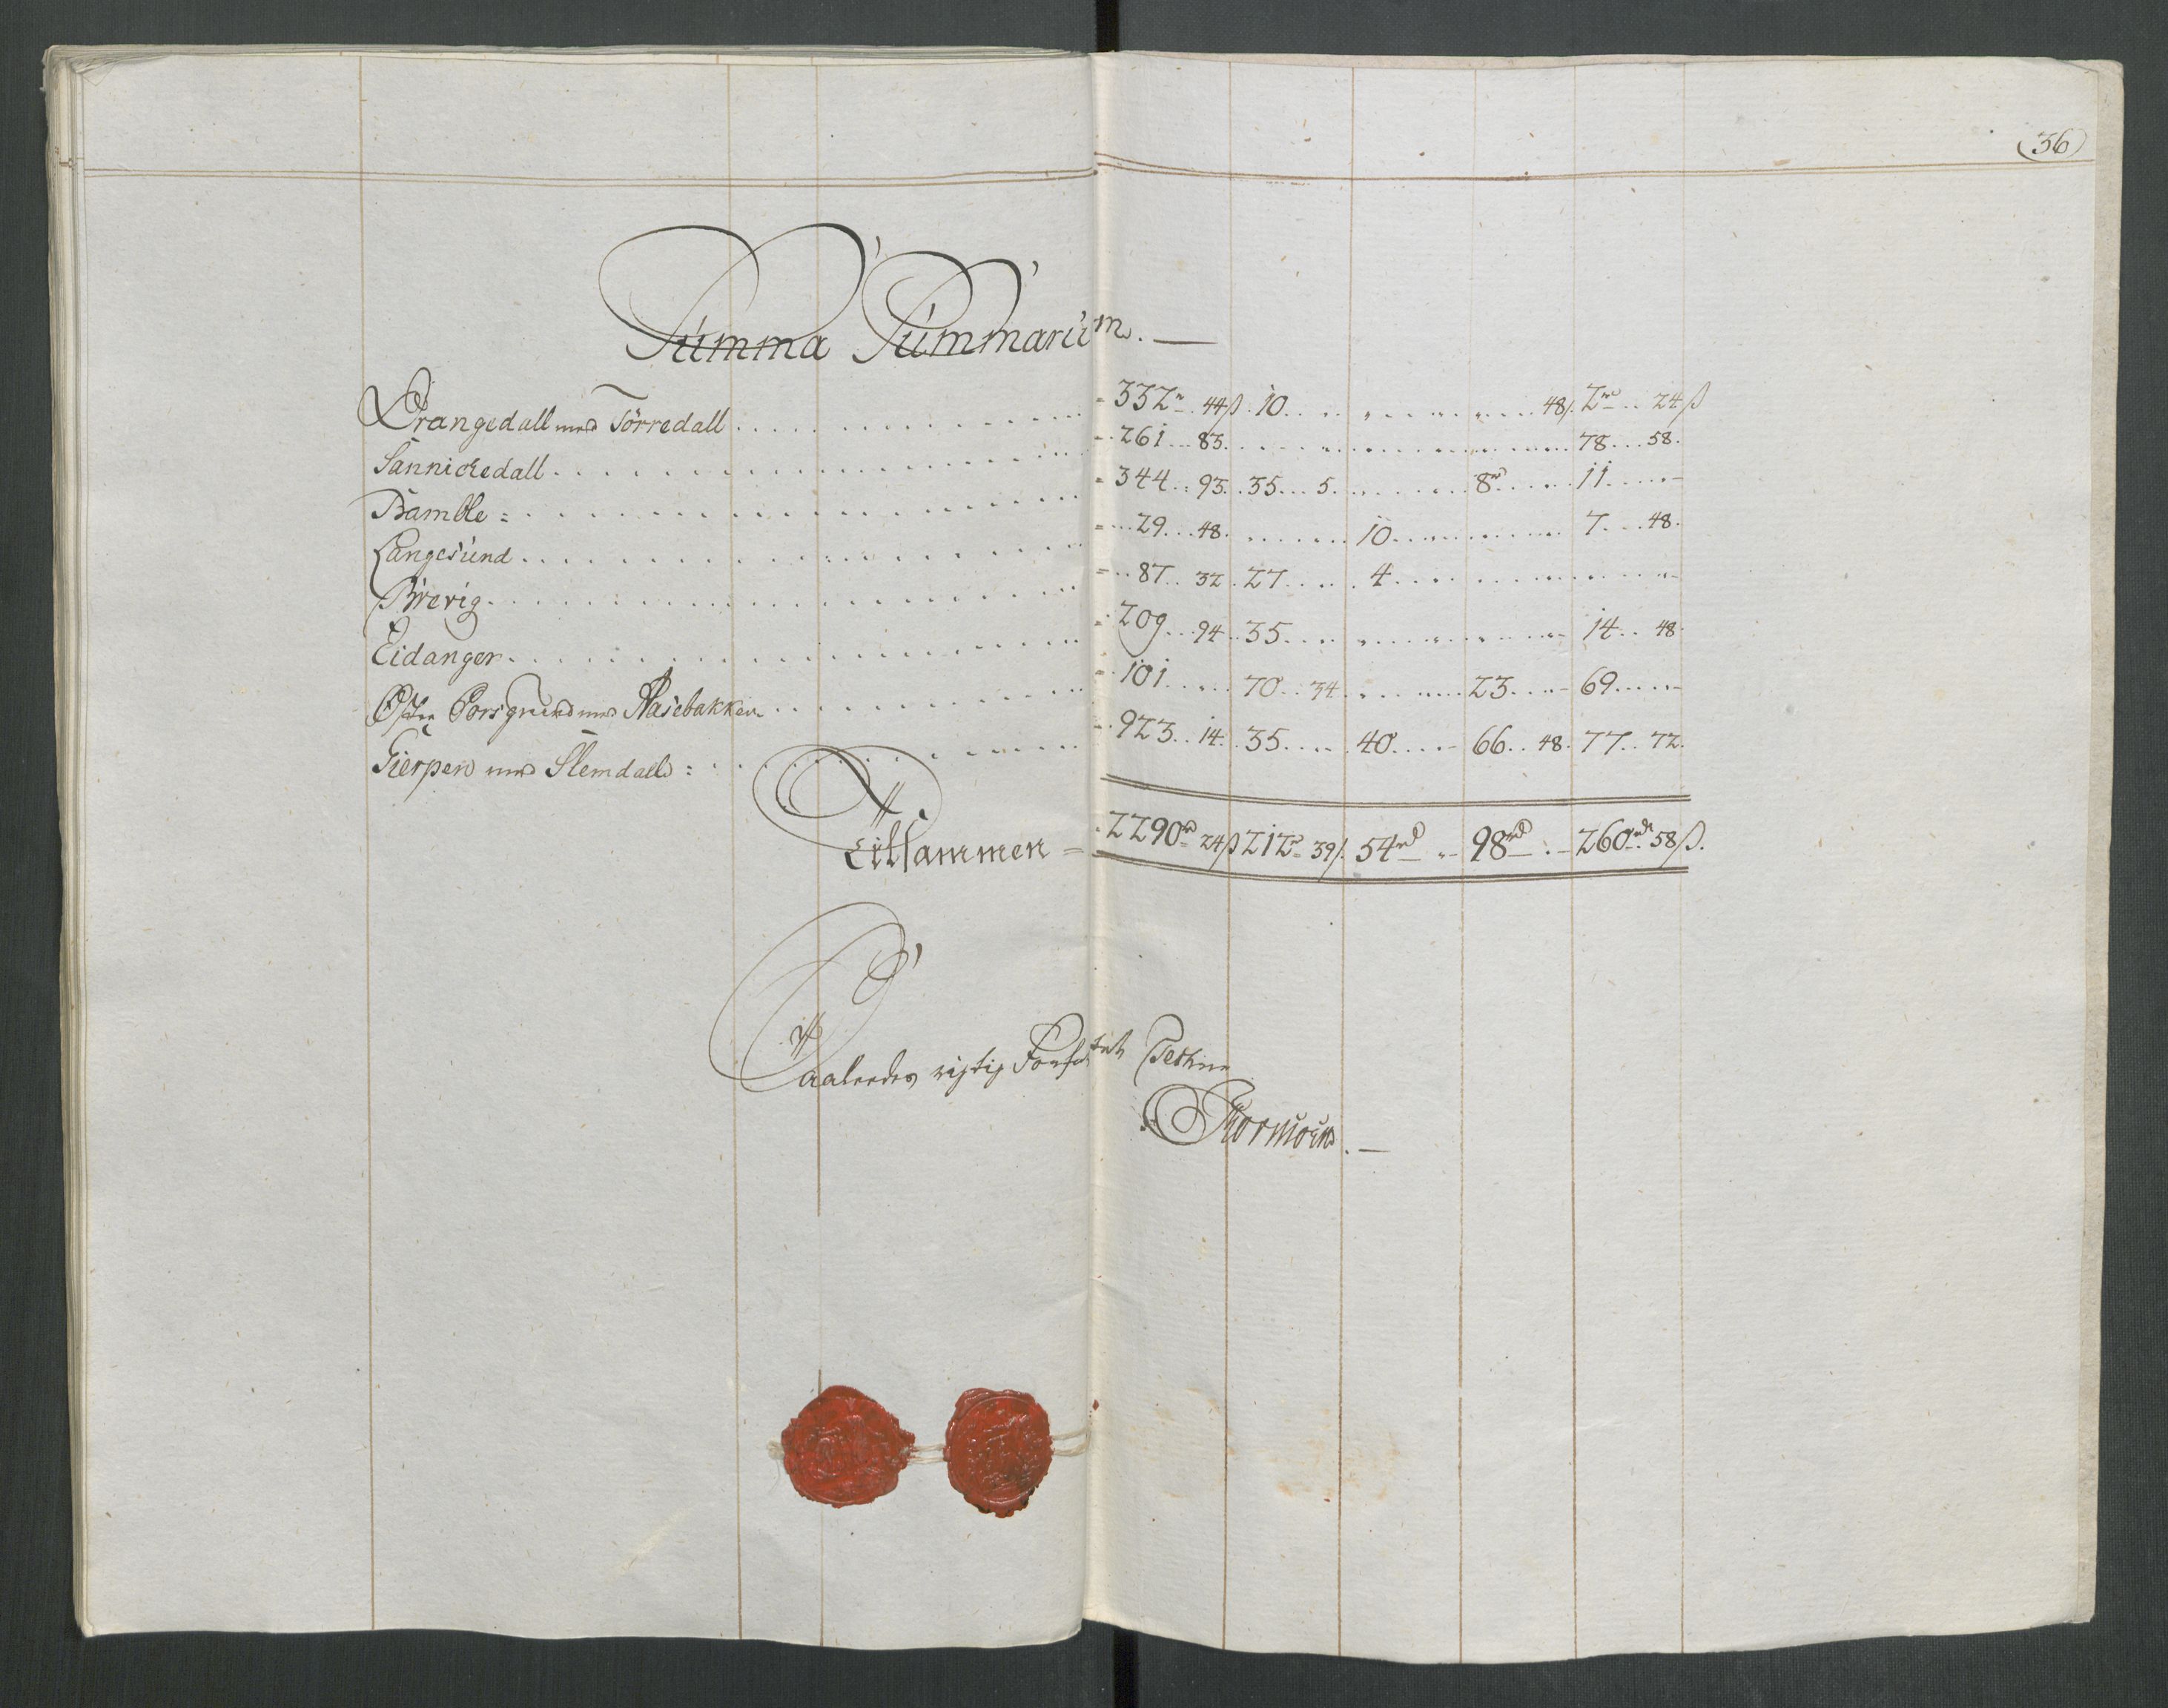 36
Summa Summarium.
Drangedall med Törredall = 332 rd 44 ß 10 48 ß 2 rd 24 ß
Sannickedall 261 83 78 58
Bamble = 344 93 35 5 8 rd 11
Langesund 29 48 10 7 48
Brevig 87 32 27 4
Eidanger 209 94 35 14 48
Östre Porsgrund med Aasebakken 101 70 34 23 69
Gierpen med Slemdall 923 14 35 40 66 48 77 72
Tilsammen = 2290 rd 24 ß 212 rd 39 ß 54 rd 98 rd 260 rd 58 ß
Saaledes rigtig Forfattet Testerer